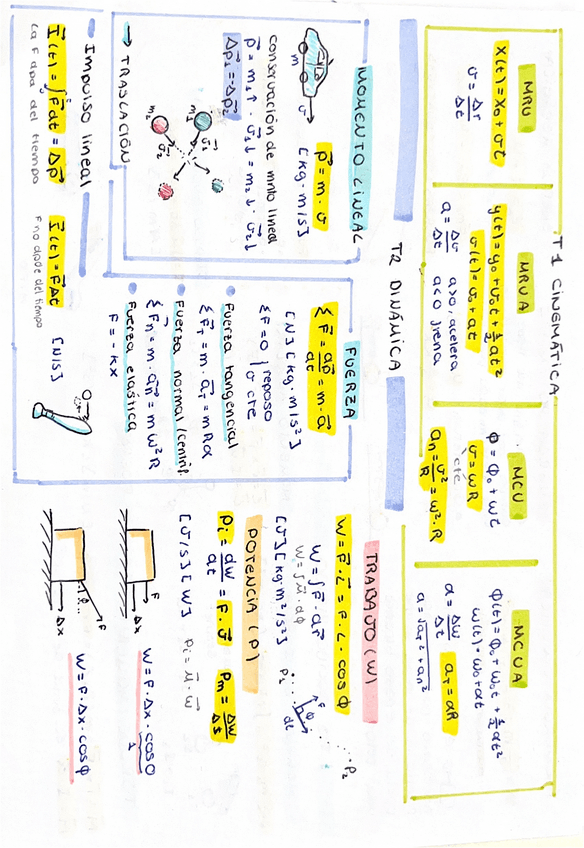 T1 CINEMÁTICA
MRU
x(t) = x₀ + vt
v = Δr/Δt
MRUA
y(t) = y₀ + v₀t + ½at²
v(t) = v₀ + at
a = Δv/Δt a>0, acelera
a<0 frena
MCU
φ = φ₀ + wt
cte
v = wR
aₙ = v²/R = w²·R
MCUA
φ(t) = φ₀ + w₀t + ½αt²
w(t) = w₀ + αt
α = Δw/Δt aₜ = αR
a = √aₜ² + aₙ²
T2 DINÁMICA
MOMENTO LINEAL
m
v
p⃗ = m · v⃗
[kg·m/s]
conservación de mnto lineal
Δp⃗₁ = -Δp⃗₂
m₁
v⃗₁
m₂
v⃗₂
→ TRASLACIÓN
• Impulso lineal
I⃗(t) = ∫F⃗dt = Δp⃗
la F dpde del tiempo
I⃗(t) = F⃗Δt
F no dpde del tiempo
[N/s]
FUERZA
ΣF⃗ = dp⃗/dt = m · a⃗
[N][kg·m/s²]
ΣF = 0 reposo
v cte
• Fuerza tangencial
ΣF⃗ₜ = m · a⃗ₜ = mRα
• Fuerza normal/centríp.
ΣF⃗ₙ = m · a⃗ₙ = mw²R
• Fuerza elástica
F = -kx
TRABAJO (W)
W = F⃗ · L⃗ = F · L · cosϕ
W = ∫F⃗ · dr⃗
[J][kgm²/s²]
P₁
F
ϕ
P₂
POTENCIA (P)
Pᵢ = dW/dt = F⃗ · v⃗ Pₘ = ΔW/Δt
[J/s][W]
F
Δx
W = F · Δx · cos0
1
F
Δx
W = F · Δx · cosϕ